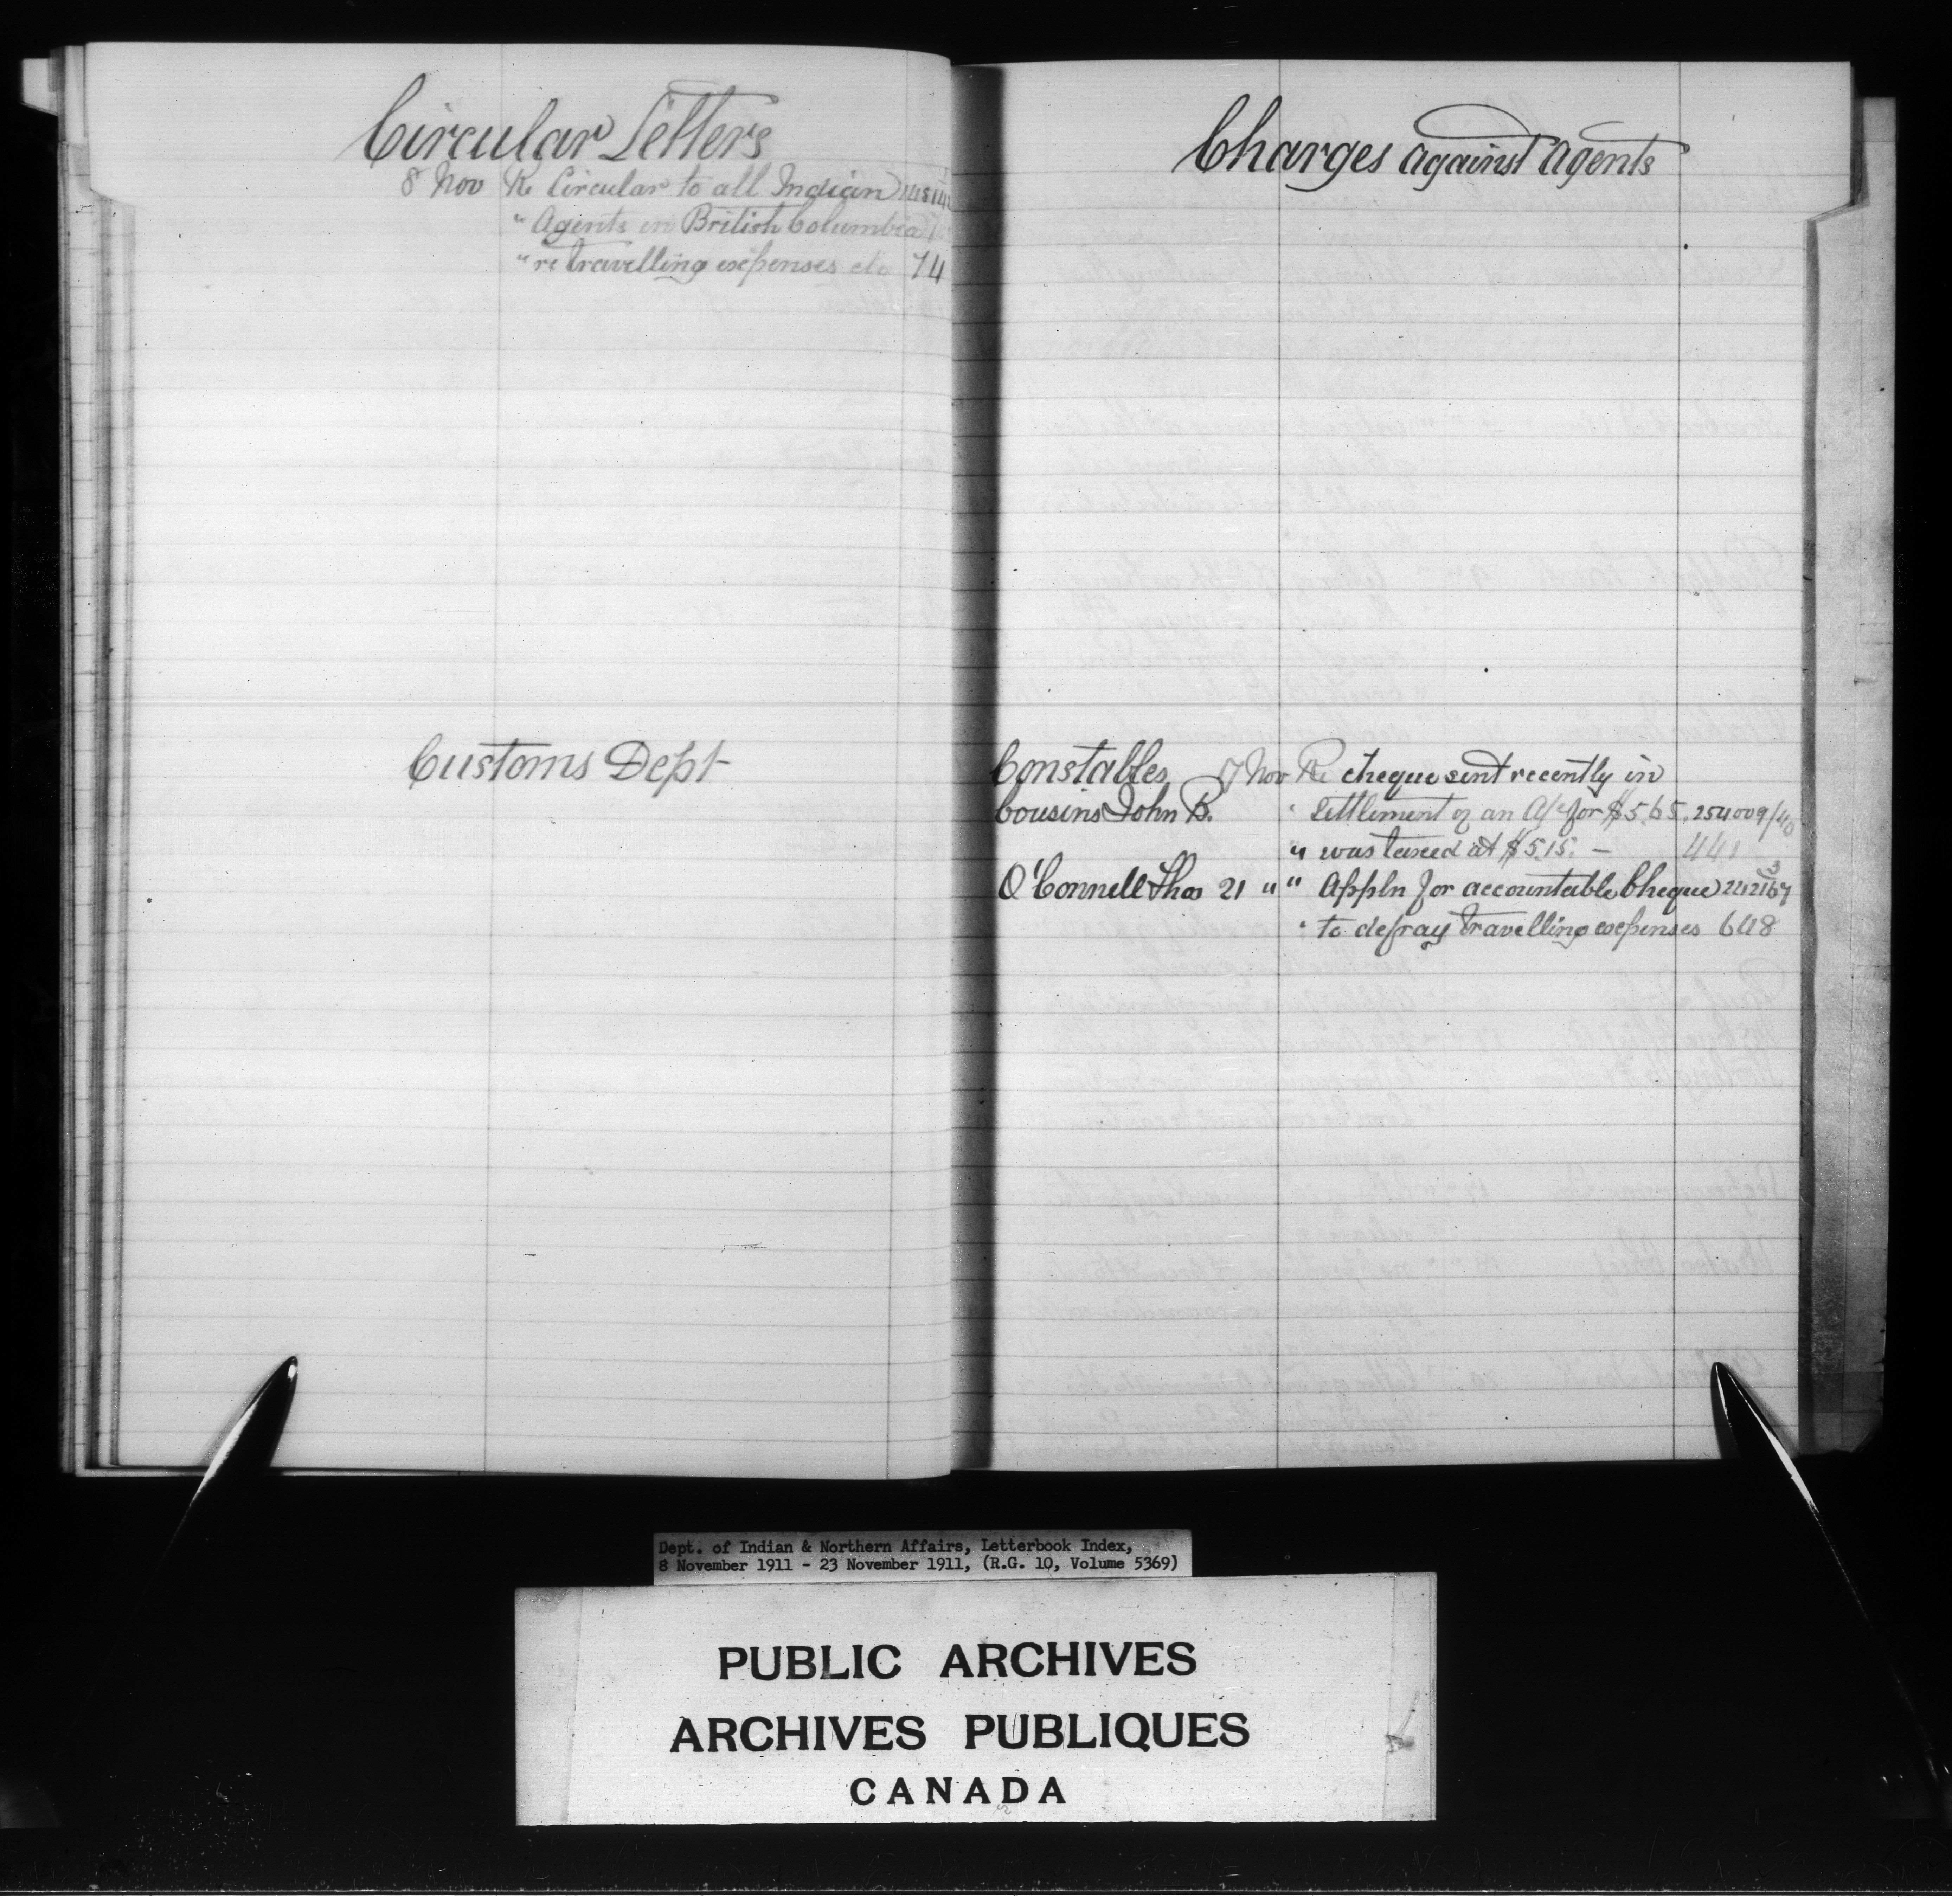 Circular Letters
8 Nov Re Circular to all Indian
" Agents in British Columbia
" re travelling expenses etc 74
Customs Dept
Charges against agents
Constables 17 Nov Re cheque sent recently in
Cousins John B. " Settlement of an A/c for $5.65. 254009/40
" was taxed at $5.15. — 441
O'Connell Thos 21 " " Appln for accountable Cheque
" to defray travelling expenses 648
Dept. of Indian & Northern Affairs, Letterbook Index,
8 November 1911 - 23 November 1911, (R.G. 10, Volume 5369)
PUBLIC ARCHIVES
ARCHIVES PUBLIQUES
CANADA